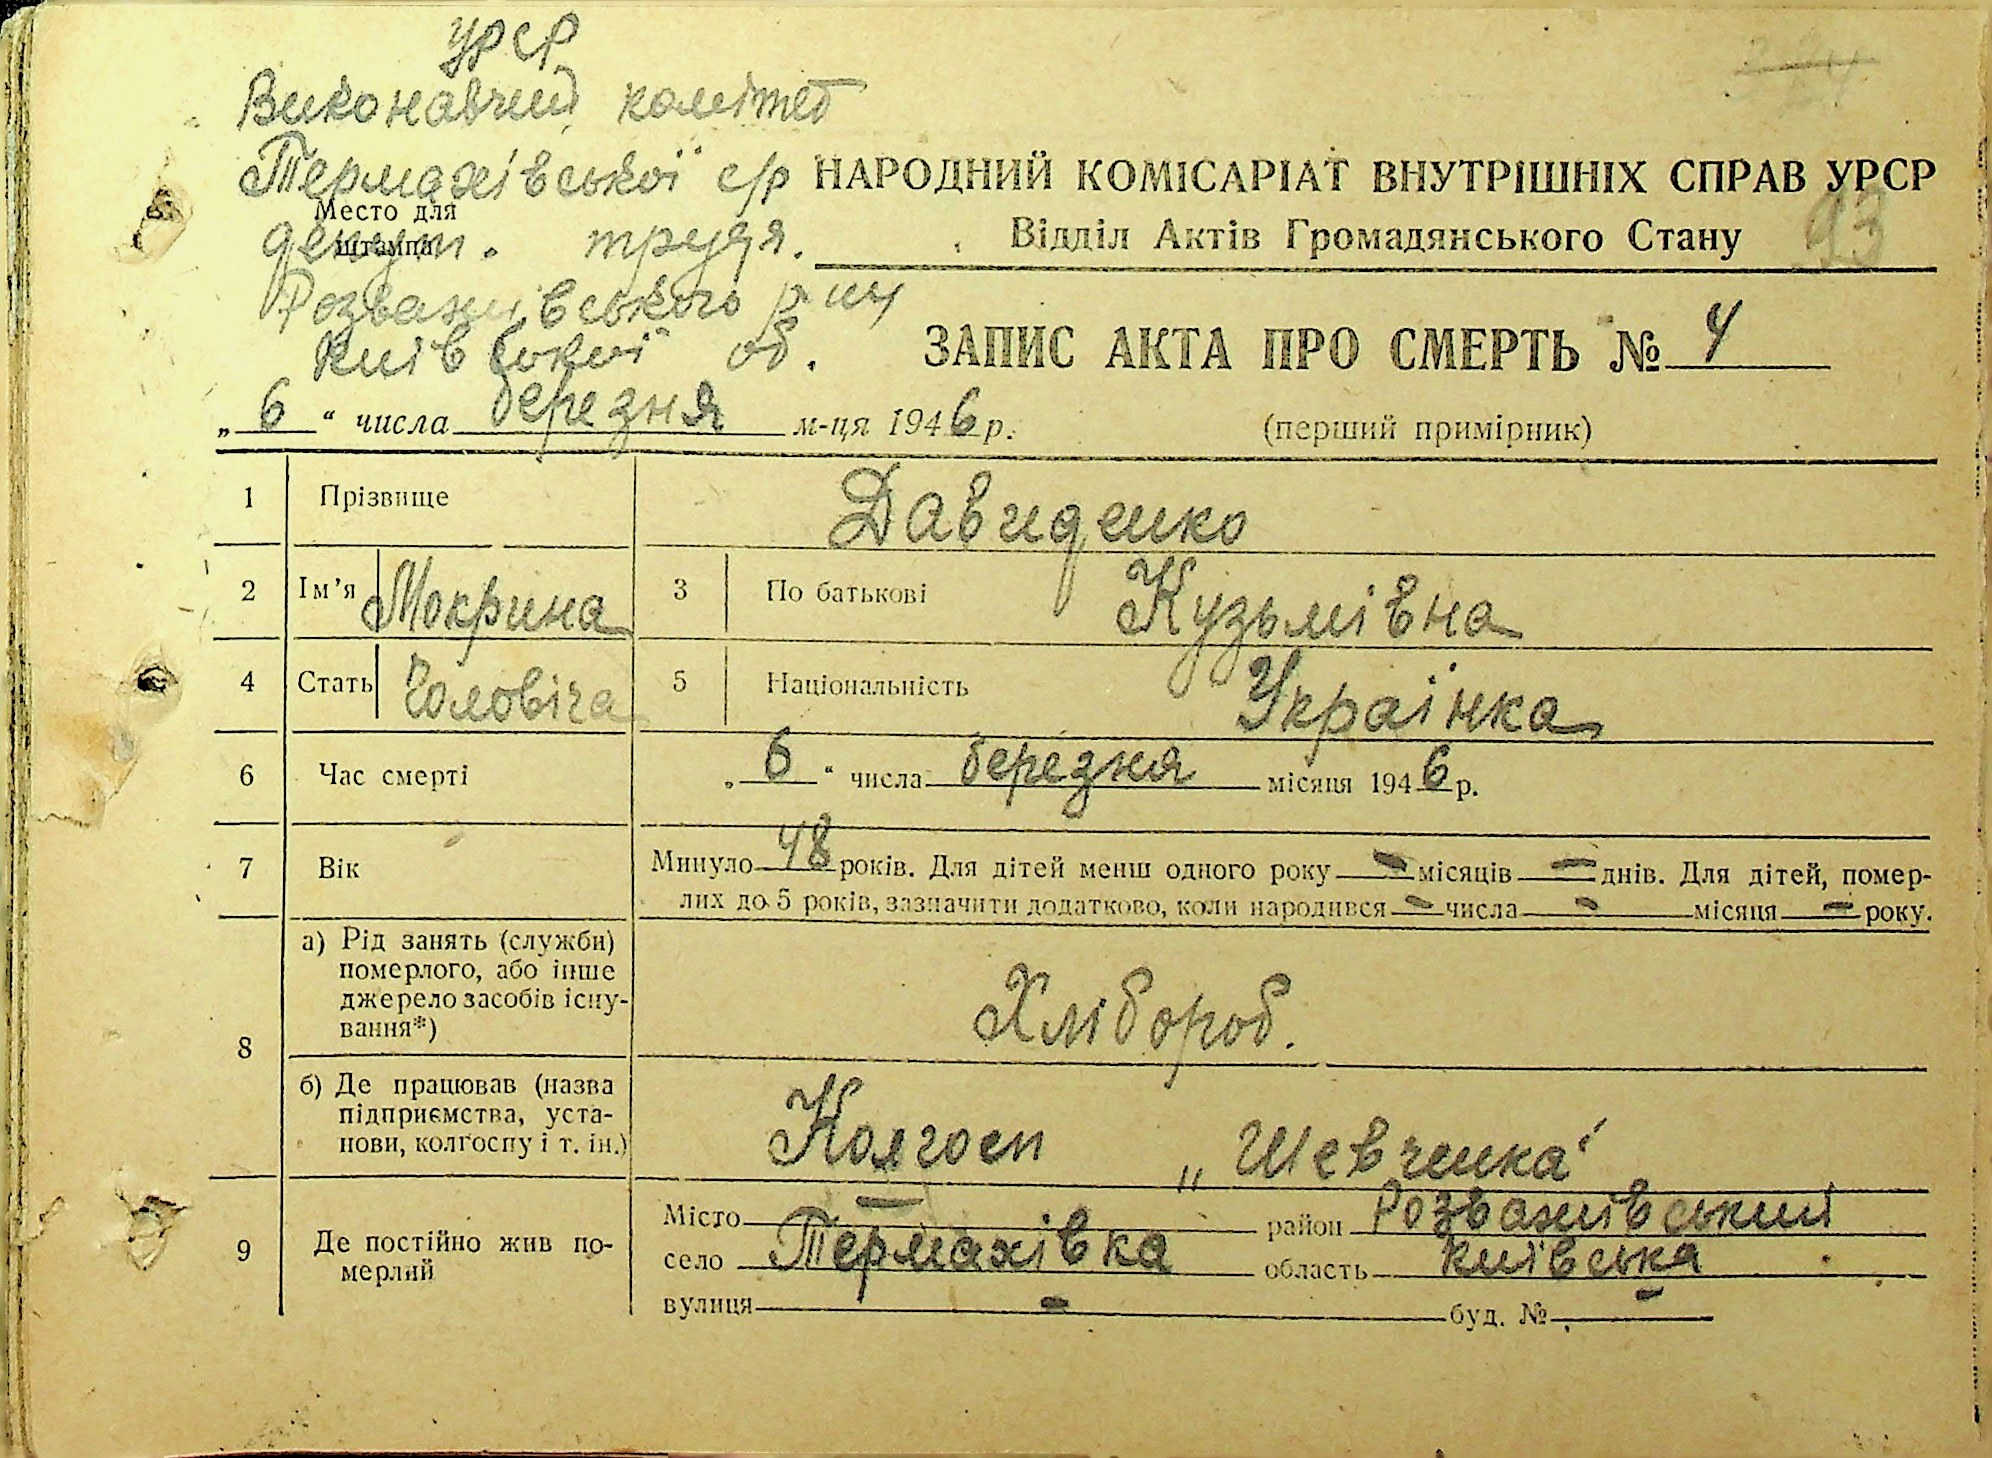 УРСР
Виконавчий комітет
Термахівської с/р
Место для
штампа
депут. трудя.
Розважівського р-ну
Київської об.
НАРОДНИЙ КОМІСАРІАТ ВНУТРІШНІХ СПРАВ УРСР
Відділ Актів Громадянського Стану
93
ЗАПИС АКТА ПРО СМЕРТЬ № 4
„ 6 “ числа березня м-ця 1946 р.
(перший примірник)
1 Прізвище Давиденко
2 Ім’я Мокрина 3 По батькові Кузьмівна
4 Стать Чоловіча 5 Національність Українка
6 Час смерті „ 6 “ числа березня місяця 1946 р.
7 Вік Минуло 48 років. Для дітей менш одного року — місяців — днів. Для дітей, помер-
лих до 5 років, зазначити додатково, коли народився — числа — місяця — року.
8 а) Рід занять (служби)
померлого, або інше
джерело засобів існу-
вання*)
Хлібороб.
б) Де працював (назва
підприємства, уста-
нови, колгоспу і т. ін.)
Колгосп „Шевченка“
9 Де постійно жив по-
мерлий
Місто — район Розважівський
село Термахівка область Київська
вулиця — буд. № —